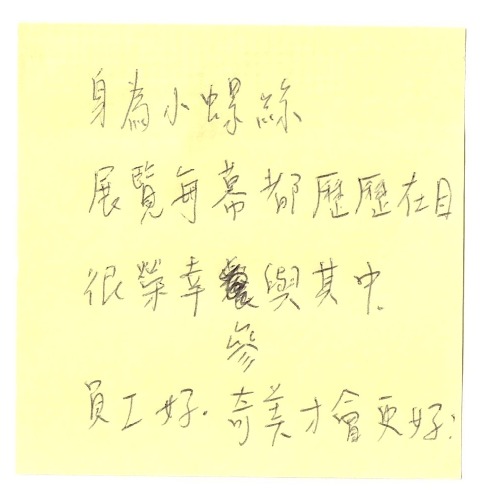 身為小螺絲
展覽每幕都歷歷在目
很榮幸參與其中.
員工好.奇美才會更好!